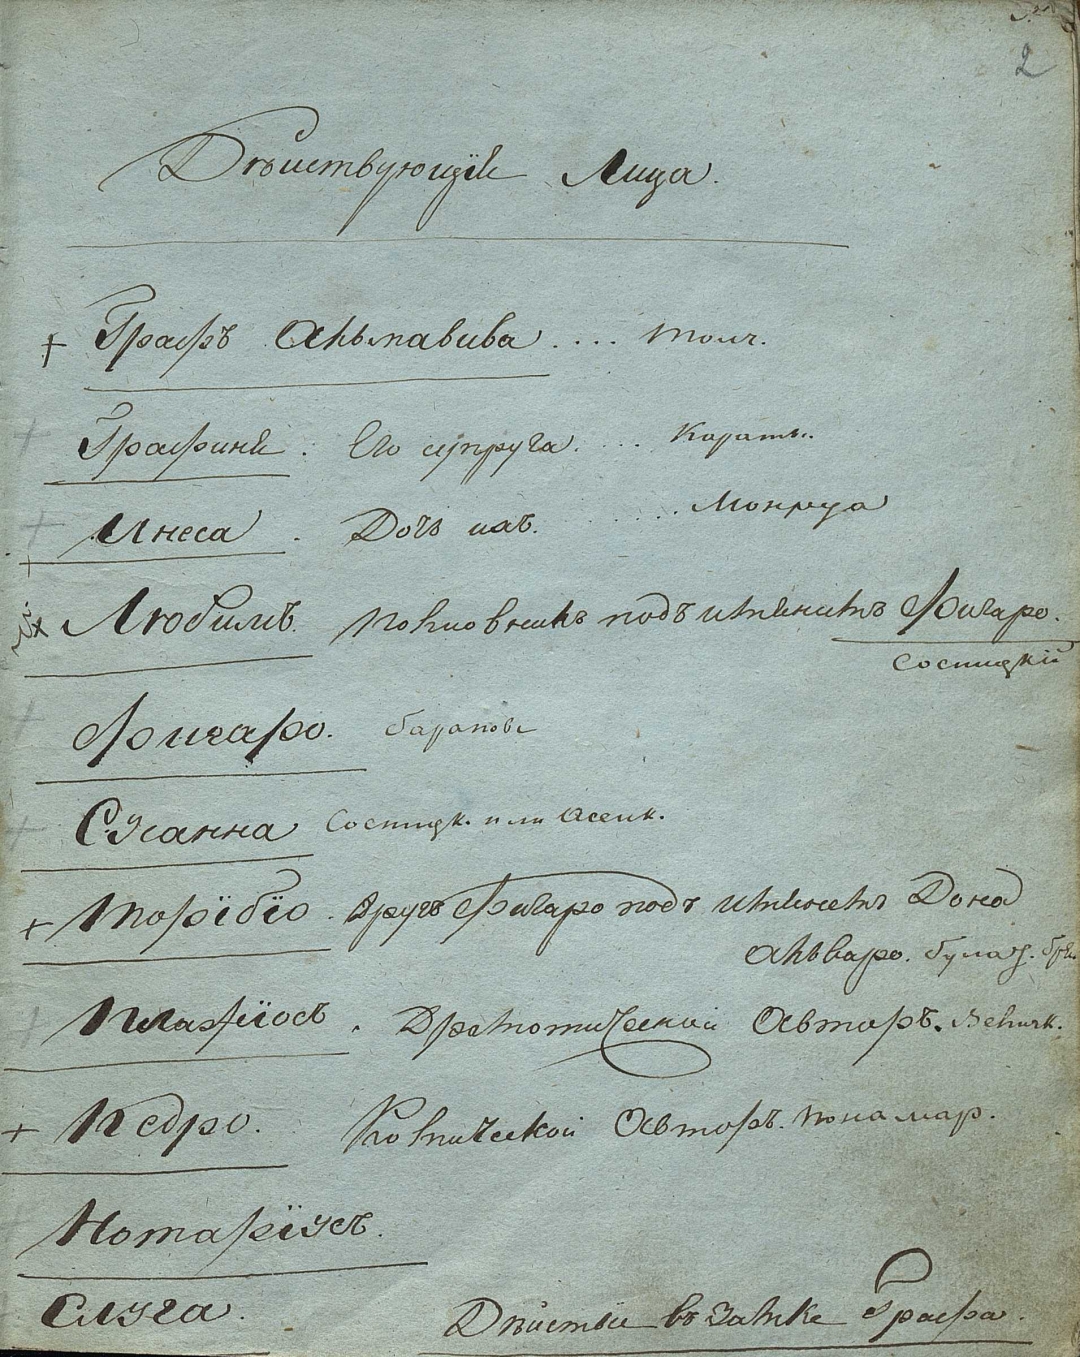 2
Дѣйствующія Лица.
+ Графъ Альмавива .... Толч.
Графиня : Его супруга. ... Карат..
Инеса . Дочь ихъ. ........ Монруа
Любимъ. Полковникъ подъ имянемъ Фигаро.
Сосницкій
Фигаро. Барановъ
Сусанна Сосницк. или Асенк.
+ Торїбїо. Другъ Фигаро подъ имянемъ Дона
Альваро. Булат.
Плагїосъ . Драматической Авторъ. Величк.
+ Педро. Комической Авторъ. Понамар.
Нотарїусъ.
Слуга.
Дѣйствіе въ Замке Графа.